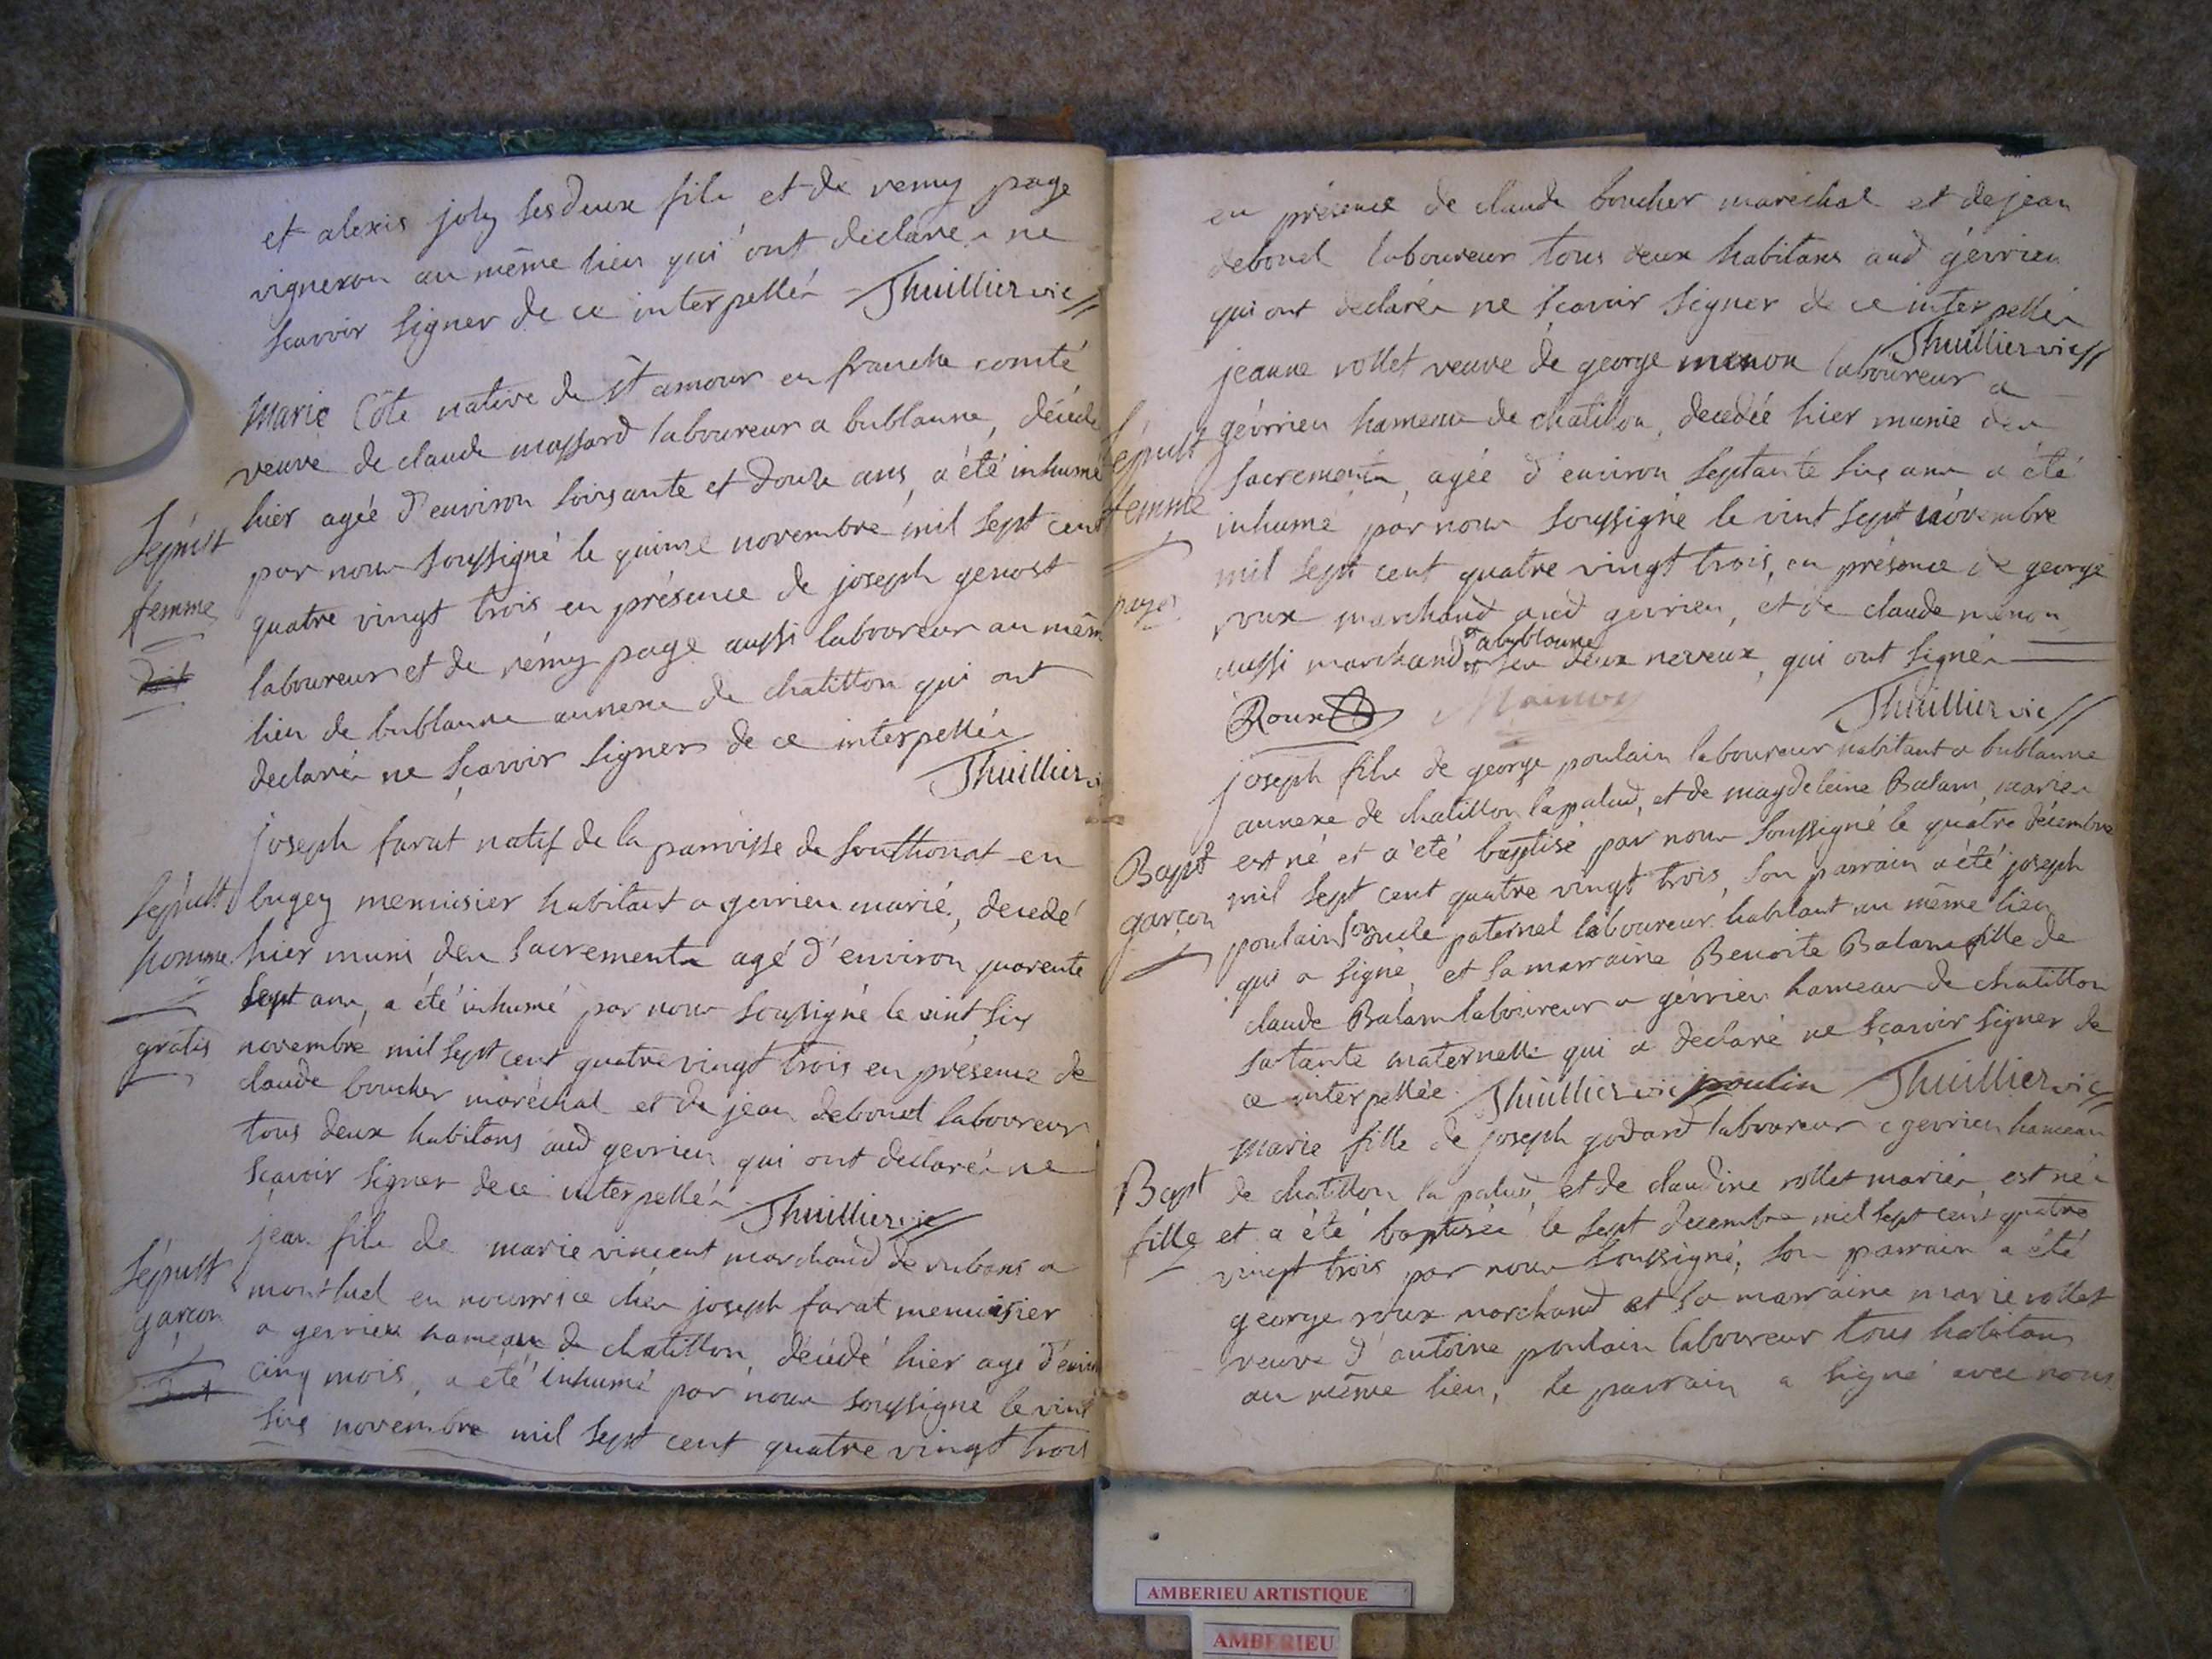 et alexis joly ses deux fils et de remy page
vigneron au même lieu qui ont déclarés ne
scavoir signer de ce interpellés Thuillier vic
Marie Côte native de st amour en franche comté
veuve de claude massard laboureur a bublanne, décédé
hier agée d'environ soixante et douze ans, a été inhumé
Sépult
par nous soussigné le quinze novembre mil sept cent
femme
quatre vingt trois en présence de joseph genost
laboureur et de rémy page aussi laboureur au même
lieu de bublanne annexe de chatillon qui ont
declarés ne sçavoir signer de ce interpellés
Thuillier
joseph farat natif de la parroisse de Southonat en
Sépult bugey menuisier habitant a gevrieu marié, decedé
homme hier muni des sacrements agé d'environ quarente
sept ans, a été inhumé par nous soussigné le vint six
gratis novembre mil sept cent quatre vingt trois en présence de
claude boucher maréchal et de jean debonel laboureur
tous deux habitans aud gevrieu qui ont declarés ne
sçavoir signer de ce interpellés Thuillier vic
jean fils de marie vincent marchand de rubans a
Sépult montluel en nourrice chez joseph farat menuisier
garcon a gevrieu hameau de chatillon, décédé hier agé d'environ
cinq mois, a été inhumé par nous soussigné le vint
six novembre mil sept cent quatre vingt trois
en présence de claude boucher maréchal et de jean
debonel laboureur tous deux habitans aud gévrieu
qui ont declarés ne scavoir signer de ce interpellés
Thuillier vic
jeanne rollet veuve de george menon laboureur a
gévrieu hameau de chatillon, decedée hier munie des
Sépult
sacrements, agée d'environ septante six ans a été
femme
inhumé par nous soussigné le vint sept novembre
mil sept cent quatre vingt trois, en présence de george
payer
roux marchand aud gevrieu, et de claude menon
aussi marchand a bublanne ses deux neveux, qui ont signés
Roux Thuillier vic
joseph fils de george poulain laboureur habitant a bublanne
annexe de chatillon lapalud, et de magdeleine Balam, mariés
Bapt est né et a été baptisé par nous soussigné le quatre décembre
mil sept cent quatre vingt trois, son parrain a été joseph
garçon poulain son oncle paternel laboureur habitant au même lieu
qui a signé, et sa marraine Benoite Balam fille de
claude Balam laboureur a gévrieu hameau de chatillon
sa tante maternelle qui a declaré ne sçavoir signer de
ce interpellée. Thuillier vic poulin Thuillier vic
Marie fille de joseph godard laboureur a gevrieu hameau
Bapt de chatillon la palud et de claudine rollet mariés, est née
fille et a été baptisée le sept decembre mil sept cent quatre
vingt trois par nous soussigné, son parrain a été
george roux marchand et sa marraine marie rollet
veuve d'antoine poulain laboureur tous habitans
au même lieu, le parrain a signé avec nous
AMBERIEU ARTISTIQUE
AMBERIEU